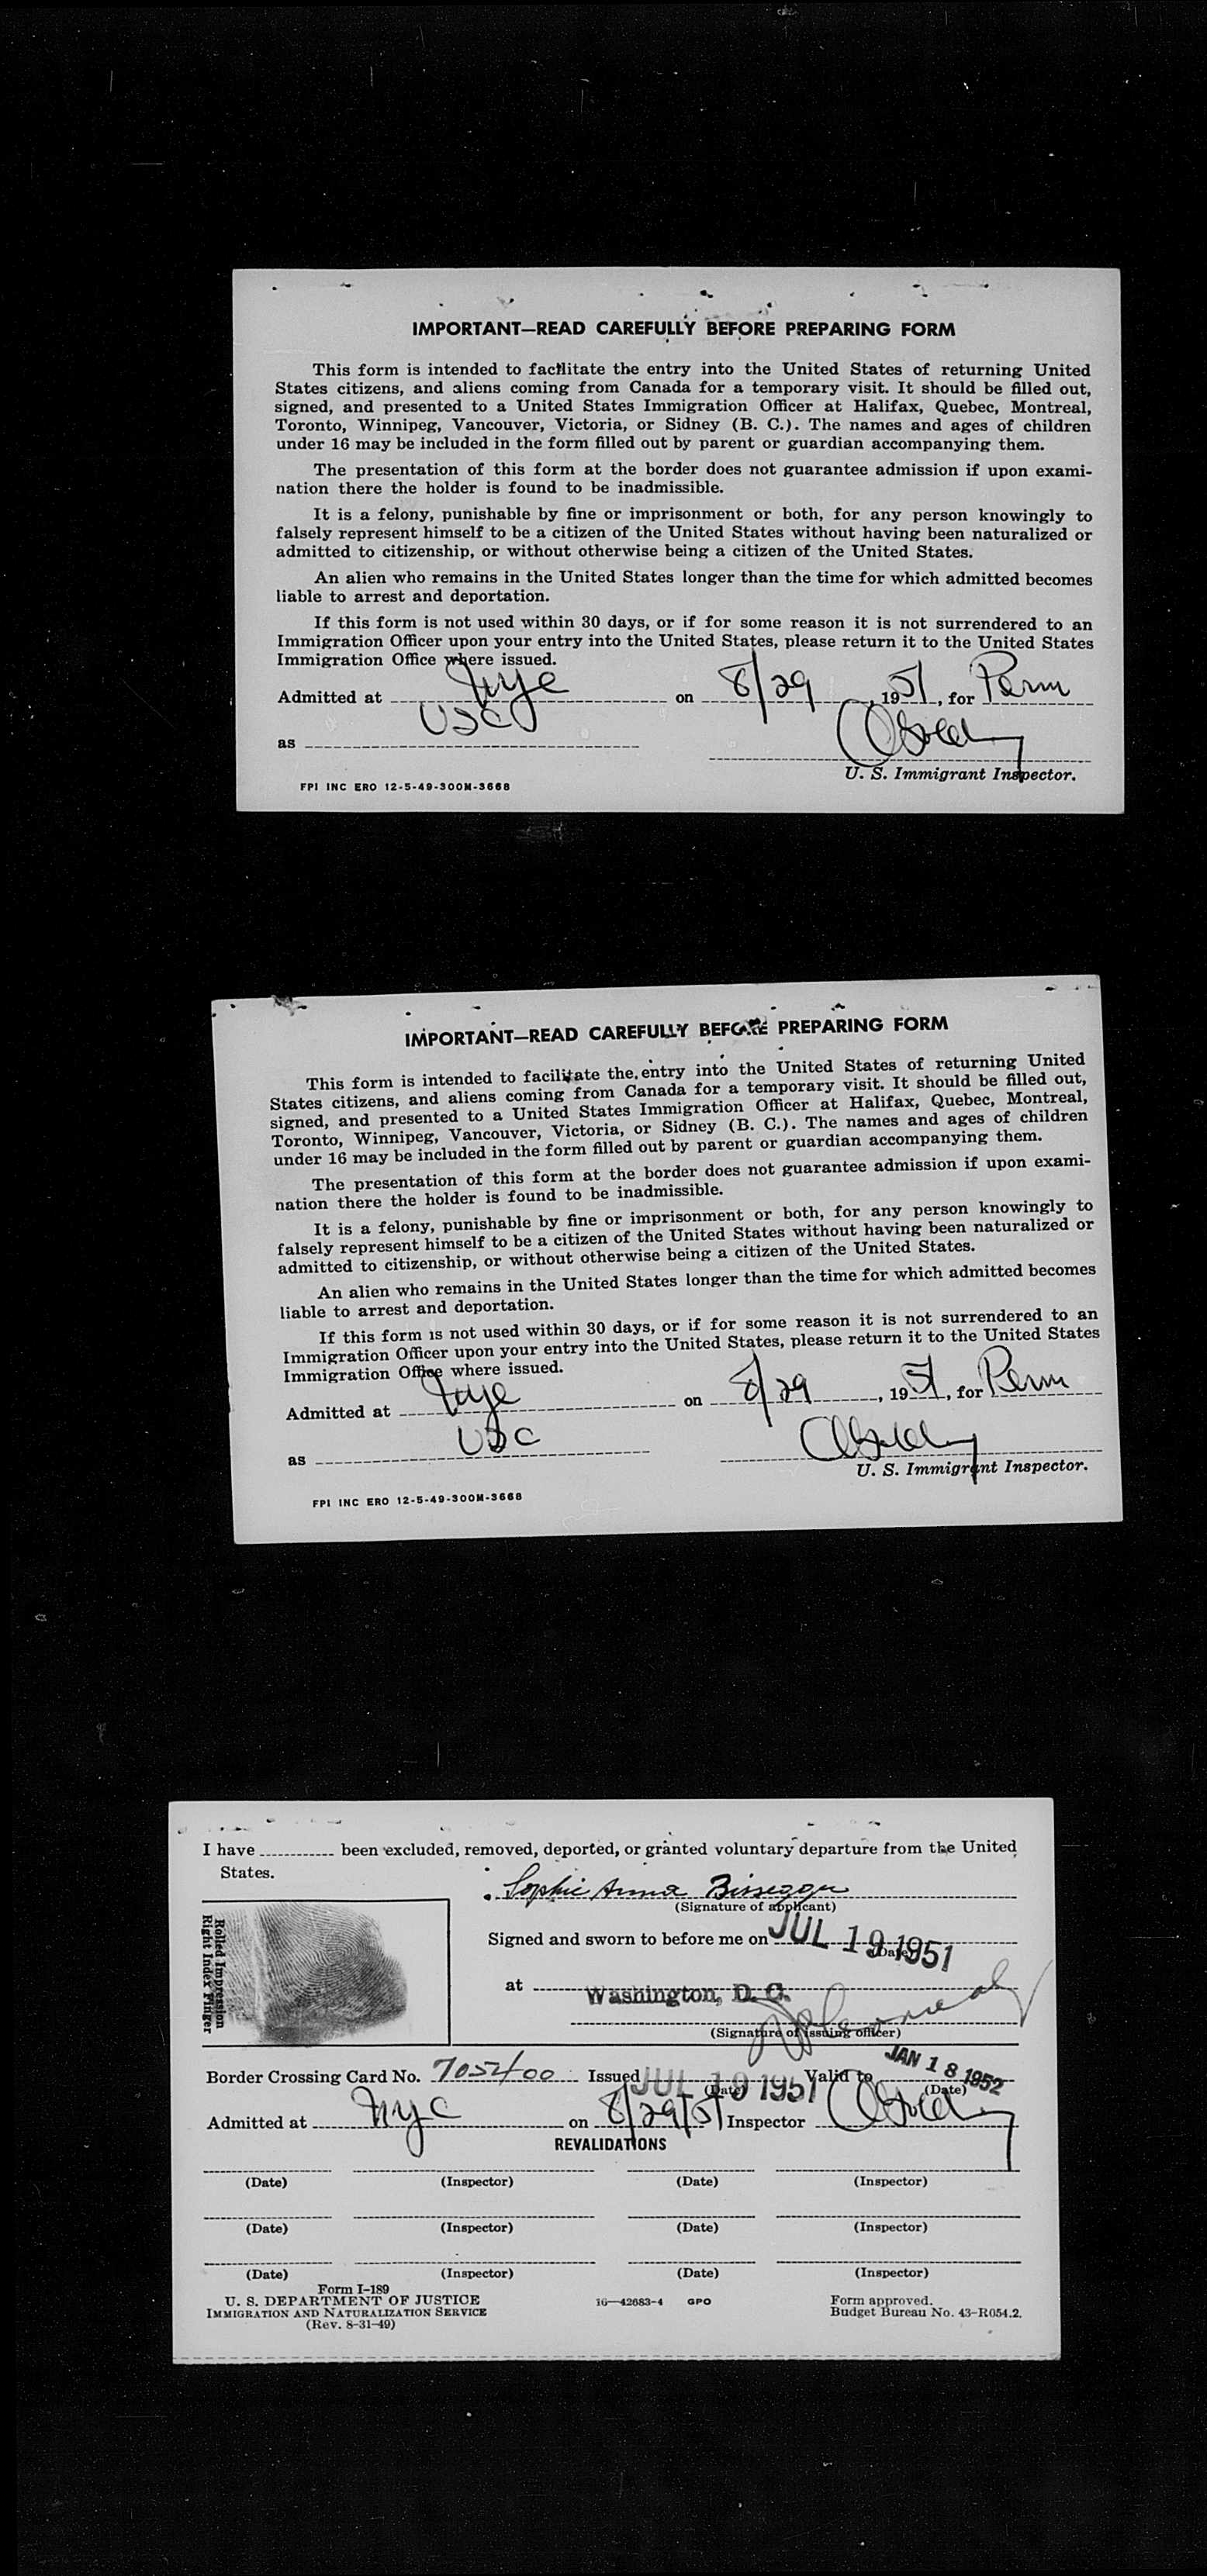 IMPORTANT—READ CAREFULLY BEFORE PREPARING FORM
This form is intended to facilitate the entry into the United States of returning United
States citizens, and aliens coming from Canada for a temporary visit. It should be filled out,
signed, and presented to a United States Immigration Officer at Halifax, Quebec, Montreal,
Toronto, Winnipeg, Vancouver, Victoria, or Sidney (B. C.). The names and ages of children
under 16 may be included in the form filled out by parent or guardian accompanying them.
The presentation of this form at the border does not guarantee admission if upon exami-
nation there the holder is found to be inadmissible.
It is a felony, punishable by fine or imprisonment or both, for any person knowingly to
falsely represent himself to be a citizen of the United States without having been naturalized or
admitted to citizenship, or without otherwise being a citizen of the United States.
An alien who remains in the United States longer than the time for which admitted becomes
liable to arrest and deportation.
If this form is not used within 30 days, or if for some reason it is not surrendered to an
Immigration Officer upon your entry into the United States, please return it to the United States
Immigration Office where issued.
Admitted at nyc on 8/29, 1951, for Perm
as USC
U. S. Immigrant Inspector.
FPI INC ERO 12-5-49-300M-3668
IMPORTANT—READ CAREFULLY BEFORE PREPARING FORM
This form is intended to facilitate the entry into the United States of returning United
States citizens, and aliens coming from Canada for a temporary visit. It should be filled out,
signed, and presented to a United States Immigration Officer at Halifax, Quebec, Montreal,
Toronto, Winnipeg, Vancouver, Victoria, or Sidney (B. C.). The names and ages of children
under 16 may be included in the form filled out by parent or guardian accompanying them.
The presentation of this form at the border does not guarantee admission if upon exami-
nation there the holder is found to be inadmissible.
It is a felony, punishable by fine or imprisonment or both, for any person knowingly to
falsely represent himself to be a citizen of the United States without having been naturalized or
admitted to citizenship, or without otherwise being a citizen of the United States.
An alien who remains in the United States longer than the time for which admitted becomes
liable to arrest and deportation.
If this form is not used within 30 days, or if for some reason it is not surrendered to an
Immigration Officer upon your entry into the United States, please return it to the United States
Immigration Office where issued.
Admitted at nyc on 8/29, 1951, for Perm
as USC
U. S. Immigrant Inspector.
FPI INC ERO 12-5-49-300M-3668
I have been excluded, removed, deported, or granted voluntary departure from the United
States.
Sophie Anna Bissegger
(Signature of applicant)
Rolled Impression
Right Index Finger
Signed and sworn to before me on JUL 19 1951
(Date)
at Washington, D. C.
(Signature of issuing officer)
Border Crossing Card No. 7052400 Issued JUL 19 1951 Valid to JAN 18 1952
(Date) (Date)
Admitted at nyc on 8/29/51 Inspector
REVALIDATIONS
(Date) (Inspector) (Date) (Inspector)
(Date) (Inspector) (Date) (Inspector)
(Date) (Inspector) (Date) (Inspector)
Form I-189
U. S. DEPARTMENT OF JUSTICE
IMMIGRATION AND NATURALIZATION SERVICE
(Rev. 8-31-49)
16—42683-4 GPO
Form approved.
Budget Bureau No. 43-R054.2.